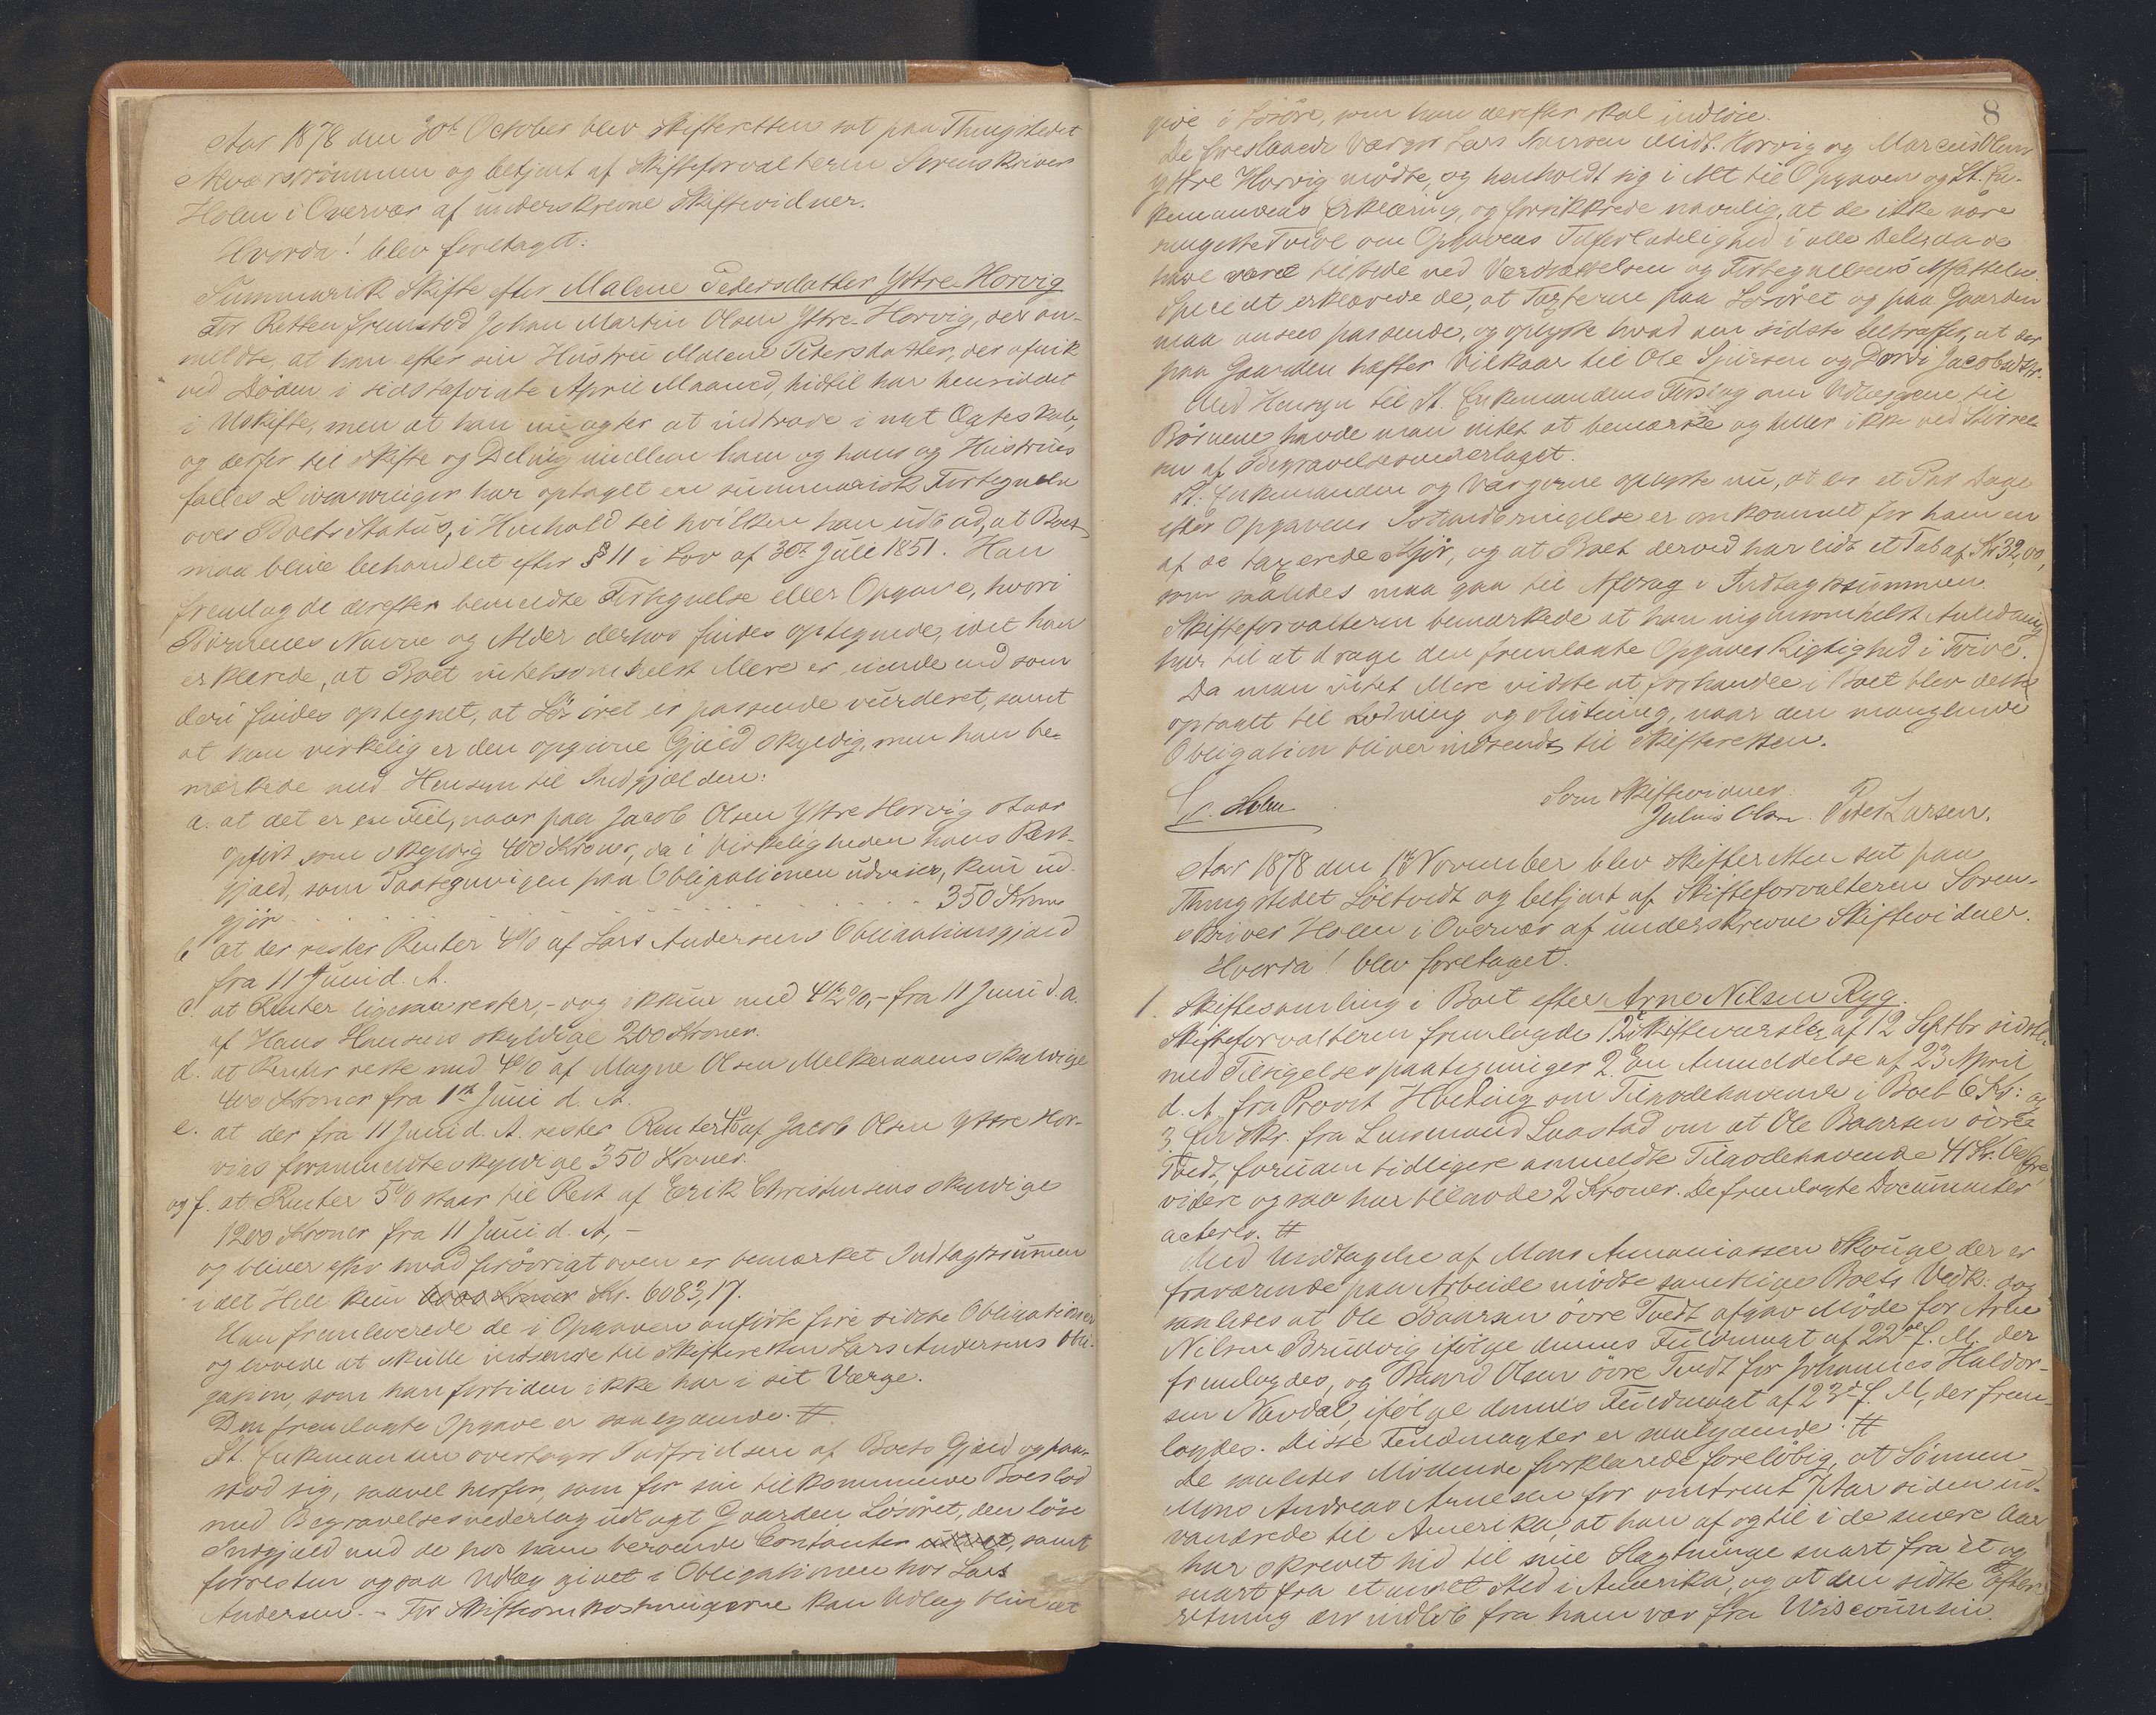 Aar 1878 den 30te October blev Skifteretten sat paa Thingstedet
Alværstrømmen og betjent af Skifteforvalteren Sorenskriver
Holm i Overvær af underskrevne Skiftevidner.
Hvorda! blev foretaget:
Summarisk Skifte efter Malene Pedersdatter Yttre-Horvig
For Retten fremstod Johan Martin Olsen Yttre-Horvig, der an-
meldte, at han efter sin Hustru Malene Pedersdatter, der afgik
ved Døden i sidstafvigte April Maaned, hidtil har hensiddet
i Uskifte, men at han nu agter at indtræde i nyt Ægteskab,
og derfor til Skifte og Deling mellem ham og hans og Hustrues
fælles Livsarvinger har optaget en summarisk Fortegnelse
over Boets Status, i Henhold til hvilken han udbad, at Boet
maa blive behandlet efter § 11 i Lov af 30te Juli 1851. Han
fremlagde derefter bemeldte Fortegnelse eller Opgave, hvori
Børnenes Navne og Alder derhos findes optegnede, idet han
erklærede, at Boet intetsomhelst Mere er eiende end som
deri findes optegnet, at Løsøret er passende vurderet, samt
at han virkelig er den opgivne Gjæld skyldig, men han be-
mærkede med Hensyn til Indgjælden:
a. at det er en Feil, naar paa Jacob Olsen Yttre Horvig staar
opført som skyldig 400 Kroner, da i Virkeligheden hans Rest-
gjæld, som Paategningen paa Obligationen udviser, kun ud-
gjør . . . . . . . . . . . 350 Kroner
b at der rester Renter 4% af Lars Andersens Obligationsgjæld
fra 11 Juni d. A.
c. at Renter ligesaa rester, - dog ikkun med 4½%, - fra 11 Juni d. A.
af Hans Hansens skyldige 200 Kroner.
d. at Renter reste med 4% af Magne Olsen Melkeraaens skyldige
400 Kroner fra 1ste Juni d. A.
e. at der fra 11 Juni d. A. rester Renter 4% af Jacob Olsen Yttre Hor-
vigs foranmeldte skyldige 350 Kroner.
og f. at Renter 5% staar til Rest af Erik Christensens skyldige
1200 Kroner fra 11 Juni d. A, -
og bliver efter hvad forøvrigt oven er bemærket Indtægtssummen
i det Hele kun Kr. 6083,17.
Han fremleverede de i Opgaven anførte fire sidste Obligationer
og lovede at skulle indsende til Skifteretten Lars Andersens Obli-
gation, som han fortiden ikke har i sit Værge.
Den fremlagte Opgave er saalydende. #.
St. Enkemanden overtager Indfrielsen af Boets Gjæld og paa-
stod sig, saavel herfor, som for sin tilkommende Boeslod
med Begravelsesvederlag udlagt Gaarden, Løsøret, den løse
Indgjæld med de hos ham beroende Contanter, samt
forresten ogsaa Udlæg givet i Obligationen hos Lars
Andersen. - For Skifteomkostningerne kan Udlæg blive at
8
give i Løsøre, som han derefter skal indløse.
De foreslaaede Værger Lars Iversen Midt. Horvig og Marcus Olsen
Yttre Horvig mødte, og henholdt sig i Alt til Opgaven og St. En-
kemandens Erklæring, og forsikkrede navnlig, at de ikke nære
ringeste Tvivl om Opgavens Tilforladelighed i alle Dele, da de
have været tilstede ved Værdsættelsen og Fortegnelsens Affattelse.
Specielt erklærede de, at Taxterne paa Løsøret og paa Gaarden
maa ansees passende, og oplyste hvad den sidste betræffer, at der
paa Gaarden hæfter Vilkaar til Ole Sjursen og Dordi Jacobsdtr.
Med Hensyn til St. Enkemandens Forslag om Udlægene til
Børnene havde man intet at bemærke og heller ikke ved Størrel-
sen af Begravelsesvederlaget.
St. Enkemanden og Værgerne oplyste nu, at der et Par Dage
efter Opgavens Istandbringelse er omkommet for ham en
af de taxerede Kjør, og at Boet derved har lidt et Tab af Kr 32,00,
som saaledes maa gaa til Afdrag i Indtægtssummen.
Skifteforvalteren bemærkede at han ingensomhelst Anledning
har til at drage den fremlagte Opgaves Rigtighed i Tvivl.
Da man intet Mere vidste at forhandle i Boet blev dette
optaget til Lodning og Slutning, naar den manglende
Obligation bliver indsendt til Skifteretten.
C. Holm
Som Skiftevidner:
Julius Olsen. Peder Larsen.
Aar 1878 den 1ste November blev Skifteretten sat paa
Thingstedet Løtvedt og betjent af Skifteforvalteren Soren-
skriver Holm i Overvær af underskrevne Skiftevidner.
Hvorda! blev foretaget.
1. Skiftesamling i Boet efter Arne Nilsen Ryg.
Skifteforvalteren fremlagde 1. Skiftevarsler af 12 Septbr sidstl.
med Tilsigelsespaategninger 2. En Anmeldelse af 23 April
d. A. fra Provst Hvoding om Tilgodehavende i Boet 6 Kr: og
3. En Skr. fra Lensmand Laastad om at Ole Baarsen øvre
Tvedt, foruden tidligere anmeldte Tilgodehavende 4 Kr.
videre ogsaa har tilgode 2 Kroner. De fremlagte Documenter
acteres. #
Med Undtagelse af Mons Annaniassen Skouge der er
fraværende paa Arbeide mødte samtlige Boets Vedk: dog
saaledes at Ole Baarsen øvre Tvedt afgav Møde for Arne
Nilsen Brudvig ifølge dennes Fuldmagt af 22de f. M. der
fremlagdes, og Baard Olsen øvre Tvedt for Johannes Haldor-
sen Navdal, ifølge dennes Fuldmagt af 23de f. M, der frem-
lagdes. Disse Fuldmagter er saalydende: #
De saaledes Mødende forklarede foreløbig, at Sønnen
Mons Andreas Arnesen for omtrent 7 Aar siden ud-
vandrede til Amerika, at han af og til i de senere Aar
har skrevet hid til sine Slægtninge snart fra et og
snart fra et andet Sted i Amerika, og at den sidste Efter-
retning der indløb fra ham var fra Wiscounsin.